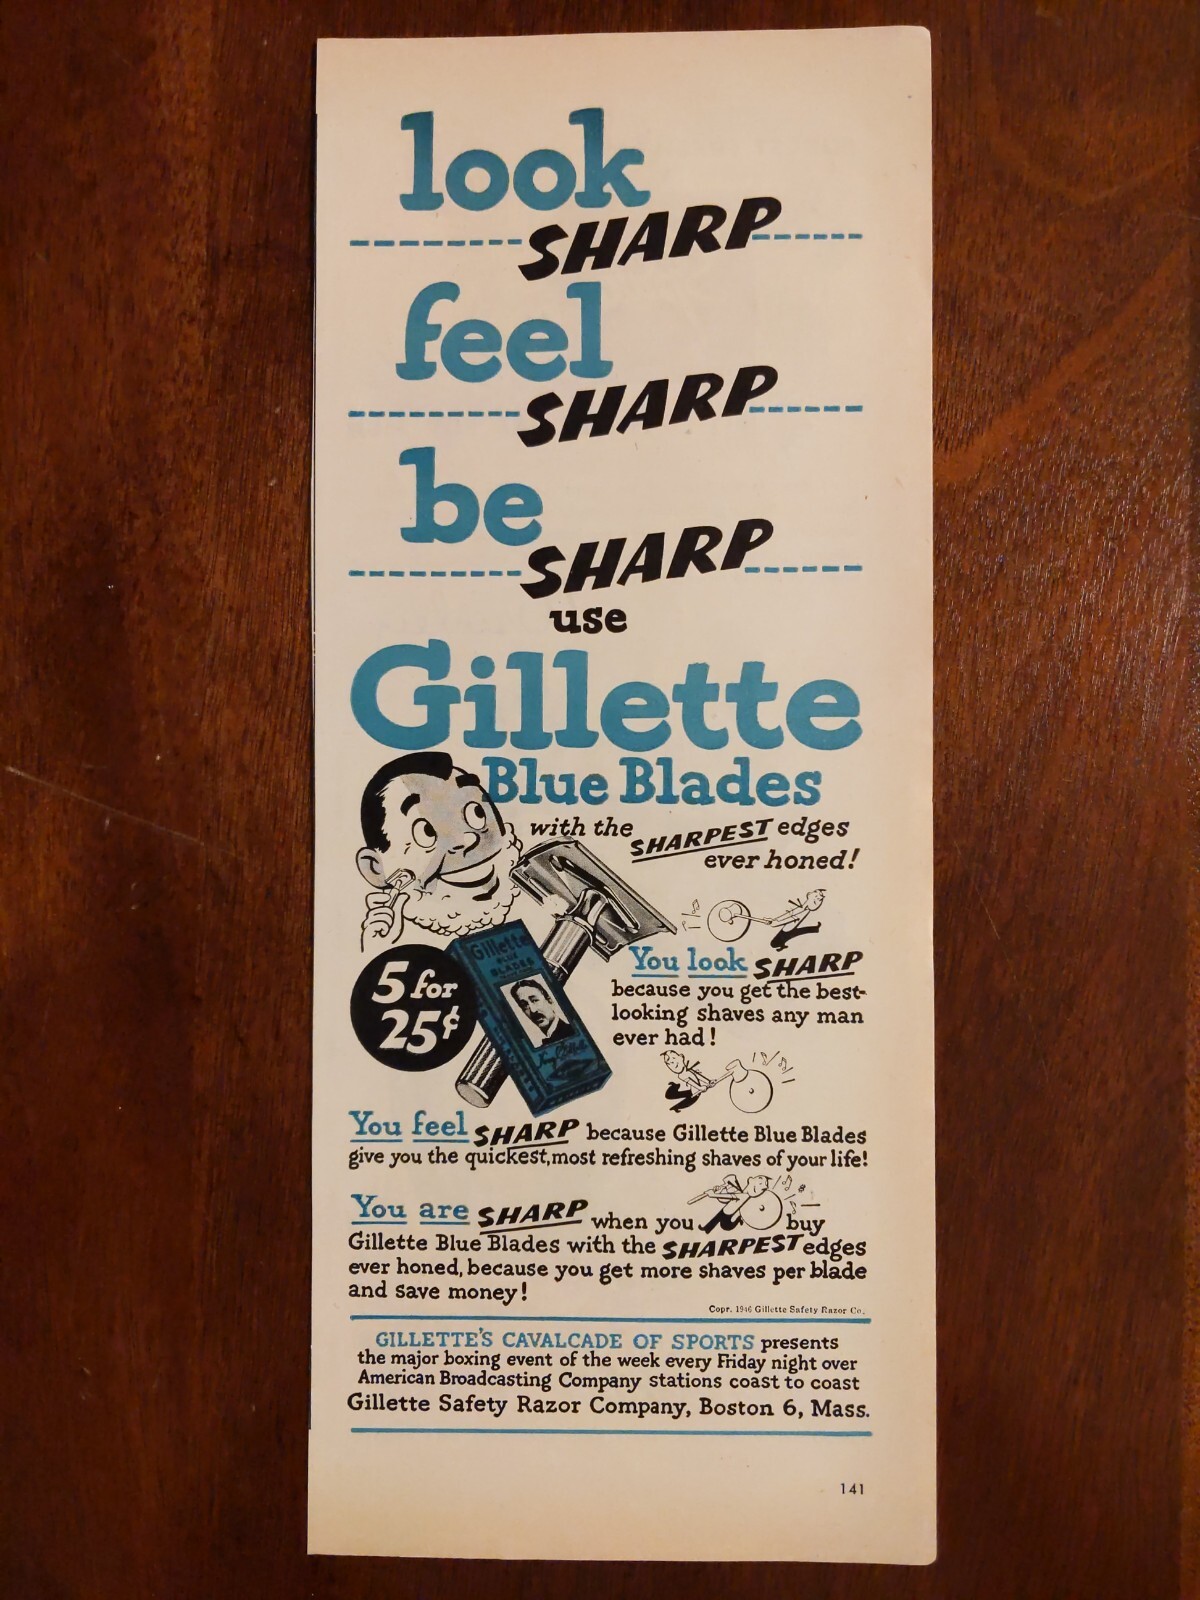 look
SHARP
feel
SHARP
be
SHARP
use
Gillette
Blue Blades
with the SHARPEST edges
ever honed!
Gillette
BLUE
BLADES
5 for
25¢
You look SHARP
because you get the best-
looking shaves any man
ever had!
You feel SHARP because Gillette Blue Blades
give you the quickest, most refreshing shaves of your life!
You are SHARP when you buy
Gillette Blue Blades with the SHARPEST edges
ever honed, because you get more shaves per blade
and save money!
Copr. 1946 Gillette Safety Razor Co.
GILLETTE'S CAVALCADE OF SPORTS presents
the major boxing event of the week every Friday night over
American Broadcasting Company stations coast to coast
Gillette Safety Razor Company, Boston 6, Mass.
141